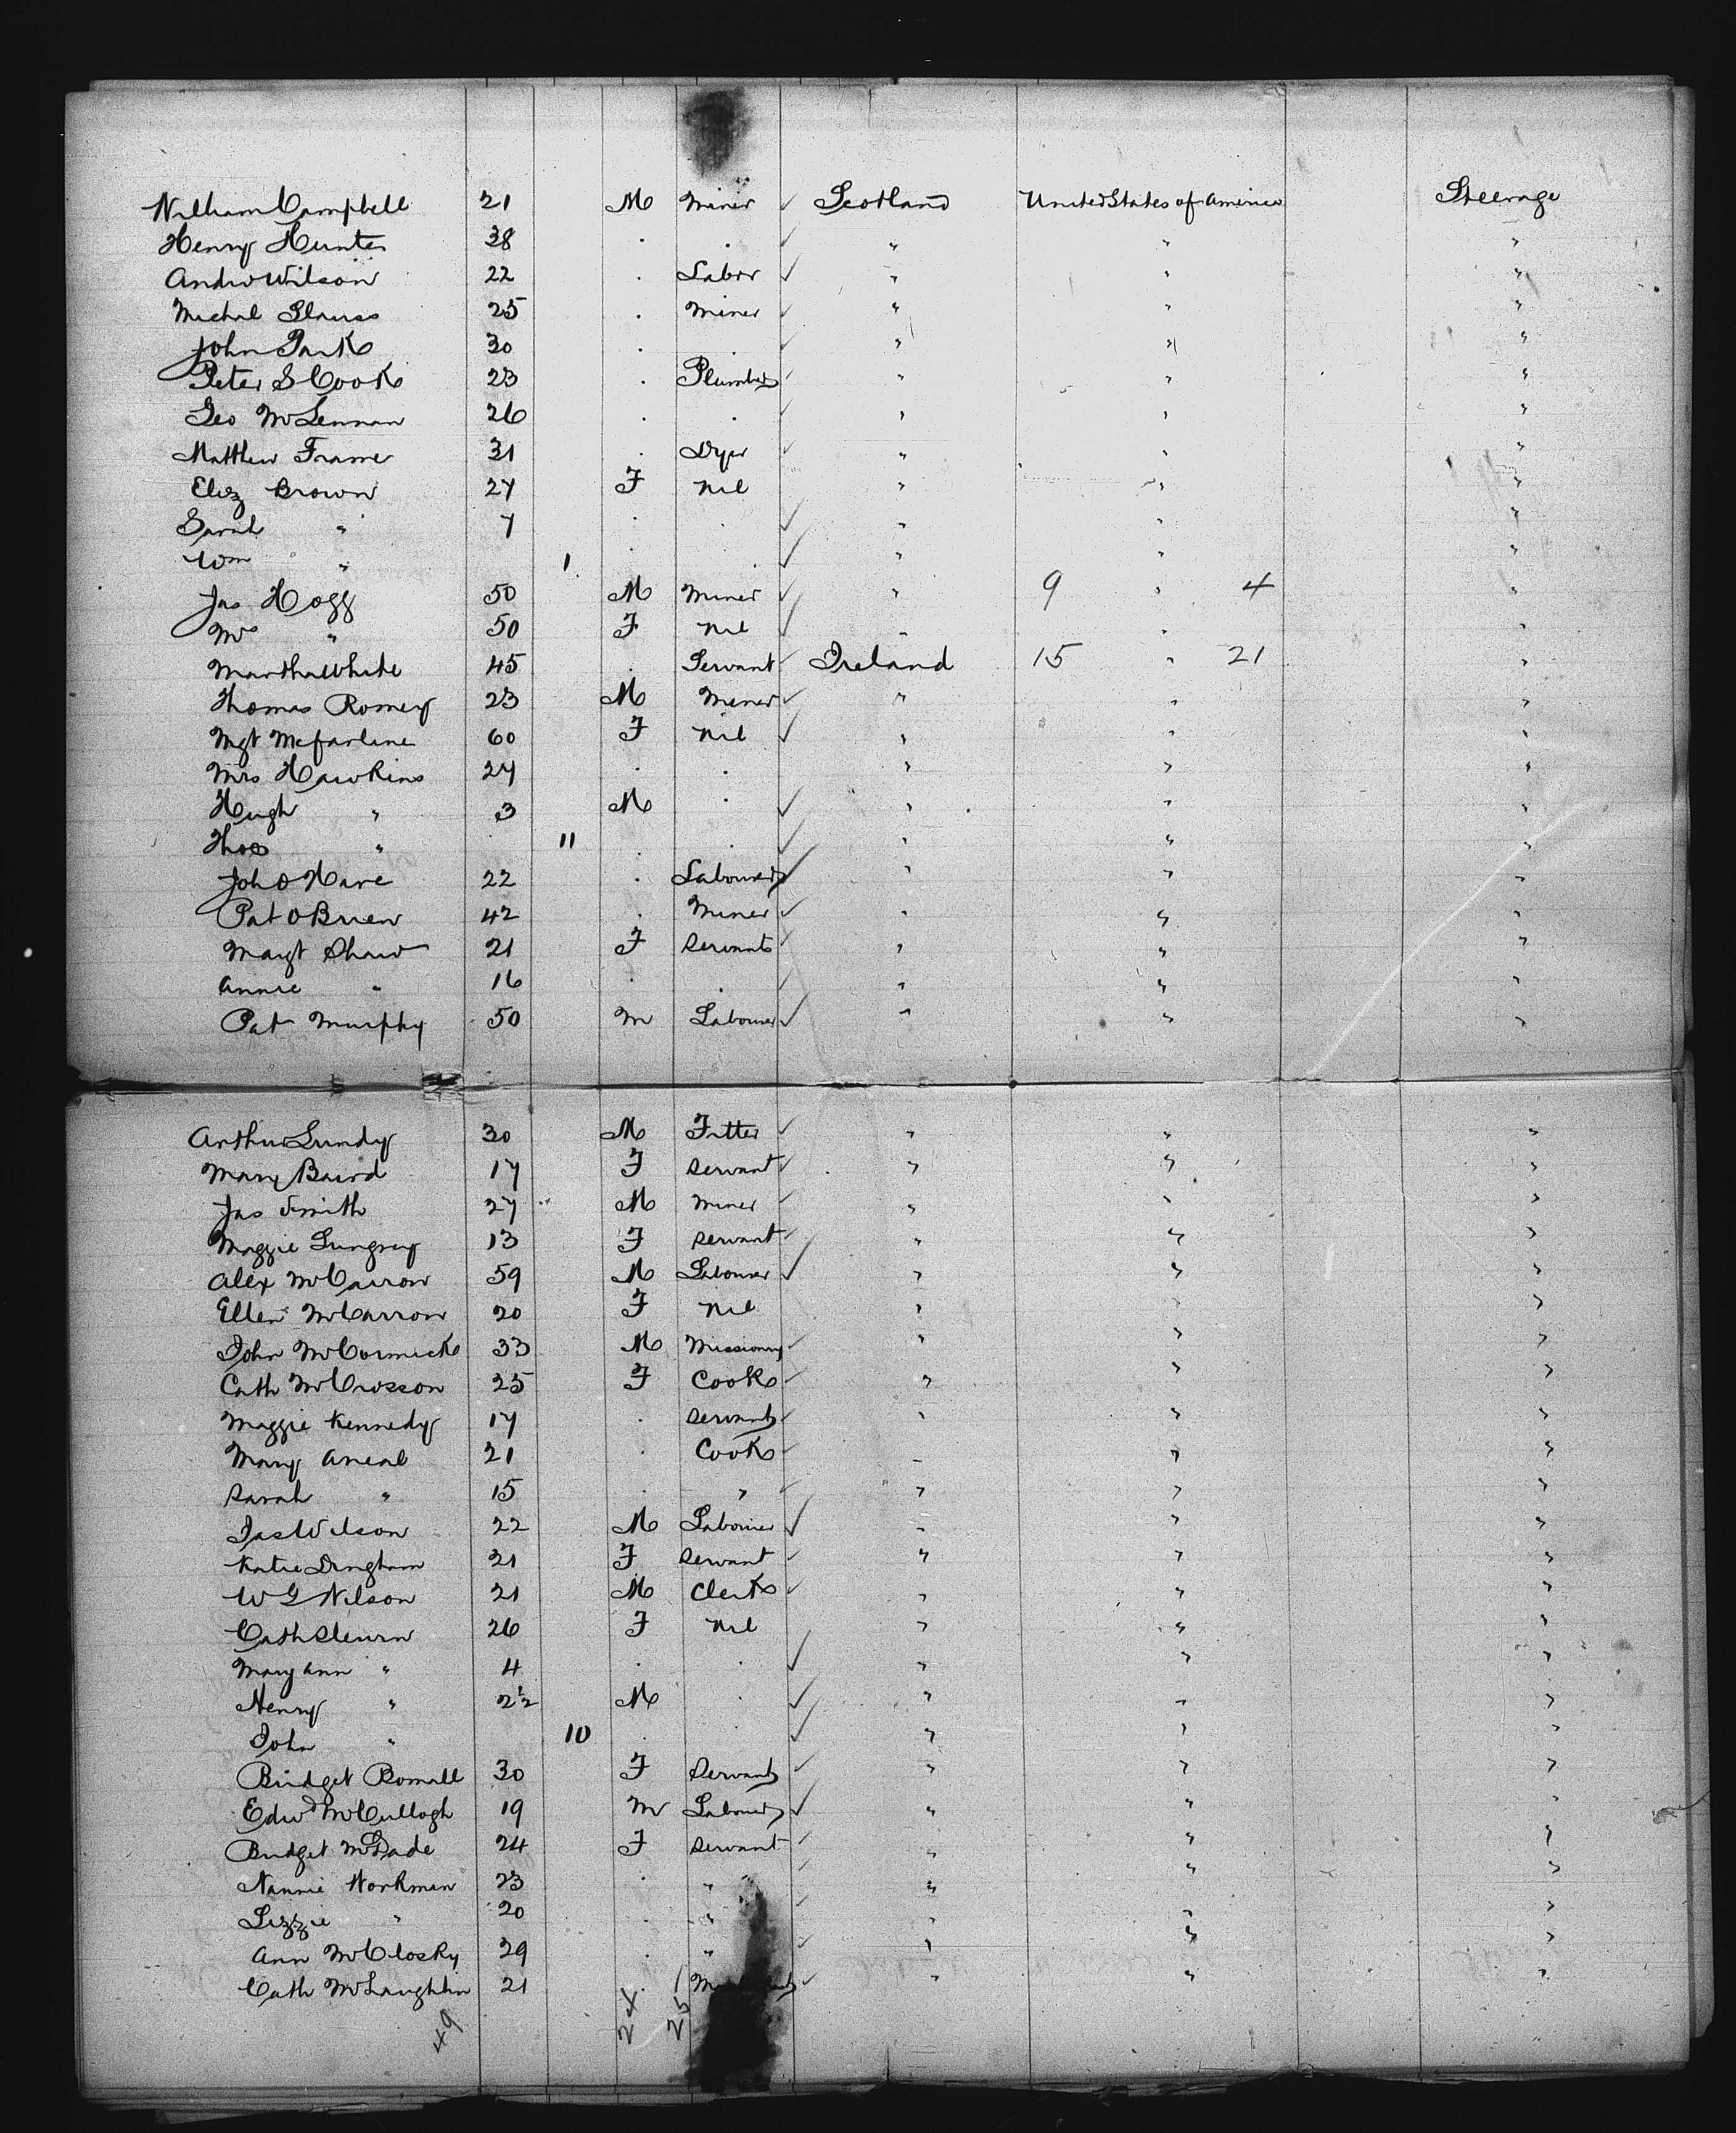 William Campbell 21 M Miner ✓ Scotland United States of America Steerage
Henry Hunter 38 . . ✓ " " "
Andw Wilson 22 . Labor ✓ " " "
Michal 25 . Miner ✓ " " "
John Park 30 . . ✓ " " "
Peter S Cook 23 . Plumber ✓ " " "
Geo McLennan 26 . . ✓ " " "
Matthew Frame 31 . Dyer ✓ " " "
Eliz Brown 27 F Nil " " "
Sarah " 7 . . ✓ " " "
Wm " 1 . . ✓ " " "
Jas Hogg 50 M Miner ✓ " 9 " 4 "
Mrs " 50 F Nil ✓ " " "
Martha White 45 . Servant ✓ Ireland 15 " 21 "
Thomas Romey 23 M Miner ✓ " " "
Mgt McFarlane 60 F Nil ✓ " " "
Mrs Hawkins 27 . . " " "
Hugh " 3 M . ✓ " " "
Thos " 11 . . ✓ " " "
Joh O Hare 22 . Labourer ✓ " " "
Pat O Brien 42 . Miner ✓ " " "
Margt Shaw 21 F Servant ✓ " " "
Annie " 16 . . ✓ " " "
Pat Murphy 50 M Labourer ✓ " " "
Arthur Lundy 30 M Fitter ✓ " " "
Mary Baird 17 F Servant ✓ " " "
Jas Smith 27 M Miner ✓ " " "
Maggie 13 F Servant ✓ " " "
Alex McCarron 59 M Labourer ✓ " " "
Ellen McCarron 20 F Nil " " "
John McCormick 33 M Missionary ✓ " " "
Cath McCrosson 25 F Cook ✓ " " "
Maggie Kennedy 17 . Servant ✓ " " "
Mary Aneal 21 . Cook ✓ " " "
Sarah " 15 . " ✓ " " "
Jas Wilson 22 M Labourer ✓ " " "
Katie Dingham 21 F Servant ✓ " " "
W G Nilson 21 M Clerk ✓ " " "
Cath 26 F Nil " " "
Mary Ann " 4 . . ✓ " " "
Henry " 2½ M . ✓ " " "
John " 10 . . ✓ " " "
Bridget 30 F Servant ✓ " " "
Edwd McCullogh 19 M Labourer ✓ " " "
Bridget McDade 24 F Servant ✓ " " "
Nannie Workman 23 . " ✓ " " "
Lizzie " 20 . " ✓ " " "
Ann McClosky 29 . " ✓ " " "
Cath McLaughlin 21 . ✓ " " "
49 24 25